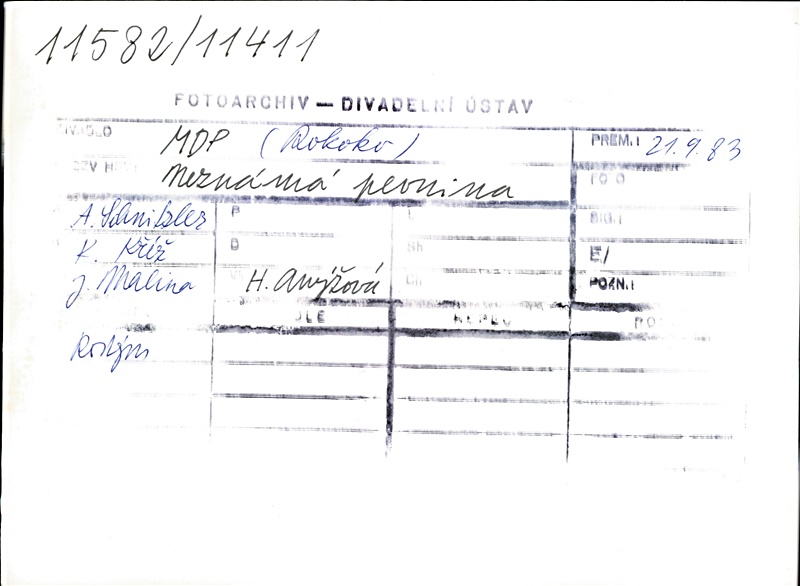 11582/11411
FOTOARCHIV — DIVADELNÍ ÚSTAV
DIVADLO MDP (Rokoko) PREM.: 21.9.83
Neznámá pevnina
A. Schnitzler P
SIG.:
K. Kříž D Sh E/
J. Malina H. Anýžová POZN.:
Kostým